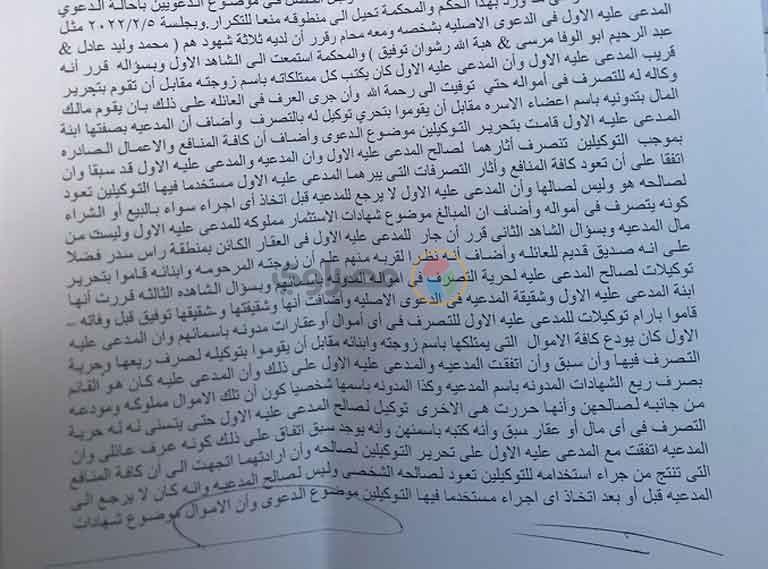 ورد بهذا الحكم والمحكمة تحيل الى منطوقه منعا للتكرار. وبجلسة ٢٠٢٢/٢/٥ مثل
المدعى عليه الاول فى الدعوى الاصليه بشخصه ومعه محام وقرر أن لديه ثلاثة شهود هم ( محمد وليد عادل &
عبد الرحيم ابو الوفا مرسى & هبة الله رشوان توفيق ) والمحكمة استمعت الى الشاهد الاول وبسؤاله قرر أنه
قريب المدعى عليه الاول وأن المدعى عليه الاول كان يكتب كل ممتلكاته باسم زوجته مقابل أن تقوم بتحرير
وكاله له للتصرف فى أمواله حتي توفيت الى رحمة الله وأن جرى العرف فى العائله على ذلك بان يقوم مالك
المال بتدونيه باسم اعضاء الاسره مقابل أن يقوموا بتحري توكيل له بالتصرف وأضاف أن المدعيه بصفتها ابنة
المدعى عليه الاول قامت بتحرير التوكيلين موضوع الدعوى وأضاف أن كافة المنافع والاعمال الصادره
بموجب التوكيلين تنصرف أثارهما لصالح المدعى عليه الاول وان المدعيه والمدعى عليه الاول قد سبقا وان
اتفقا على أن تعود كافة المنافع وأثار التصرفات التى يبرهما المدعى عليه الاول مستخدما فيها التوكيلين تعود
لصالحه هو وليس لصالها وأن المدعى عليه الاول لا يرجع للمدعيه قبل اتخاذ أى اجراء سواء بالبيع أو الشراء
كونه يتصرف فى أمواله وأضاف ان المبالغ موضوع شهادات الاستثمار مملوكه للمدعى عليه الاول وليست من
مال المدعيه وبسؤال الشاهد الثانى قرر أن جار للمدعى عليه الاول فى العقار الكائن بمنطقة راس سدر فضلا
على انه صديق قديم للعائله وأضاف أنه نظرا لقربه منهم علم أن زوجته المرحومه وابنائه قاموا بتحرير
توكيلات لصالح المدعى عليه لحرية التصرف فى اموال المدونه باسمائهم وبسؤال الشاهده الثالثه قررت أنها
ابنة المدعى عليه الاول وشقيقة المدعيه فى الدعوى الاصليه وأضافت أنها وشقيقتها و شقيقها توفيق قبل وفاته –
قاموا بارام توكيلات للمدعى عليه الاول للتصرف فى أى أموال أوعقارات مدونه باسمائهم وان المدعى عليه
الاول كان يودع كافة الاموال التى يمتلكها باسم زوجته وابنائه مقابل أن يقوموا بتوكيله لصرف ريعها وحرية
التصرف فيها وأن سبق وأن اتفقت المدعيه والمدعى عليه الاول على ذلك وأن المدعى عليه كان هو القائم
بصرف ريع الشهادات المدونه باسم المدعيه وكذا المدونه باسمها شخصيا كون أن تلك الاموال مملوكه ومودعه
من جانبه لصالحهن وأنها حررت هى الاخرى توكيل لصالح المدعى عليه الاول حتى يتسنى له له حرية
التصرف فى أى مال أو عقار سبق وأنه كتبه باسمنهن وأنه يوجد سبق اتفاق على ذلك كونه عرف عائلى وان
المدعيه اتفقت مع المدعى عليه الاول على تحرير التوكيلين لصالحه وأن ارادتهما اتجهت الى أن كافة المنافع
التى تنتج من جراء استخدامه للتوكيلين تعود لصالحه الشخصى وليس لصالح المدعيه وانه كان لا يرجع الى
المدعيه قبل أو بعد اتخاذ اى اجراء مستخدما فيها التوكيلين موضوع الدعوى وأن الاموال موضوع شهادات
مصراوي